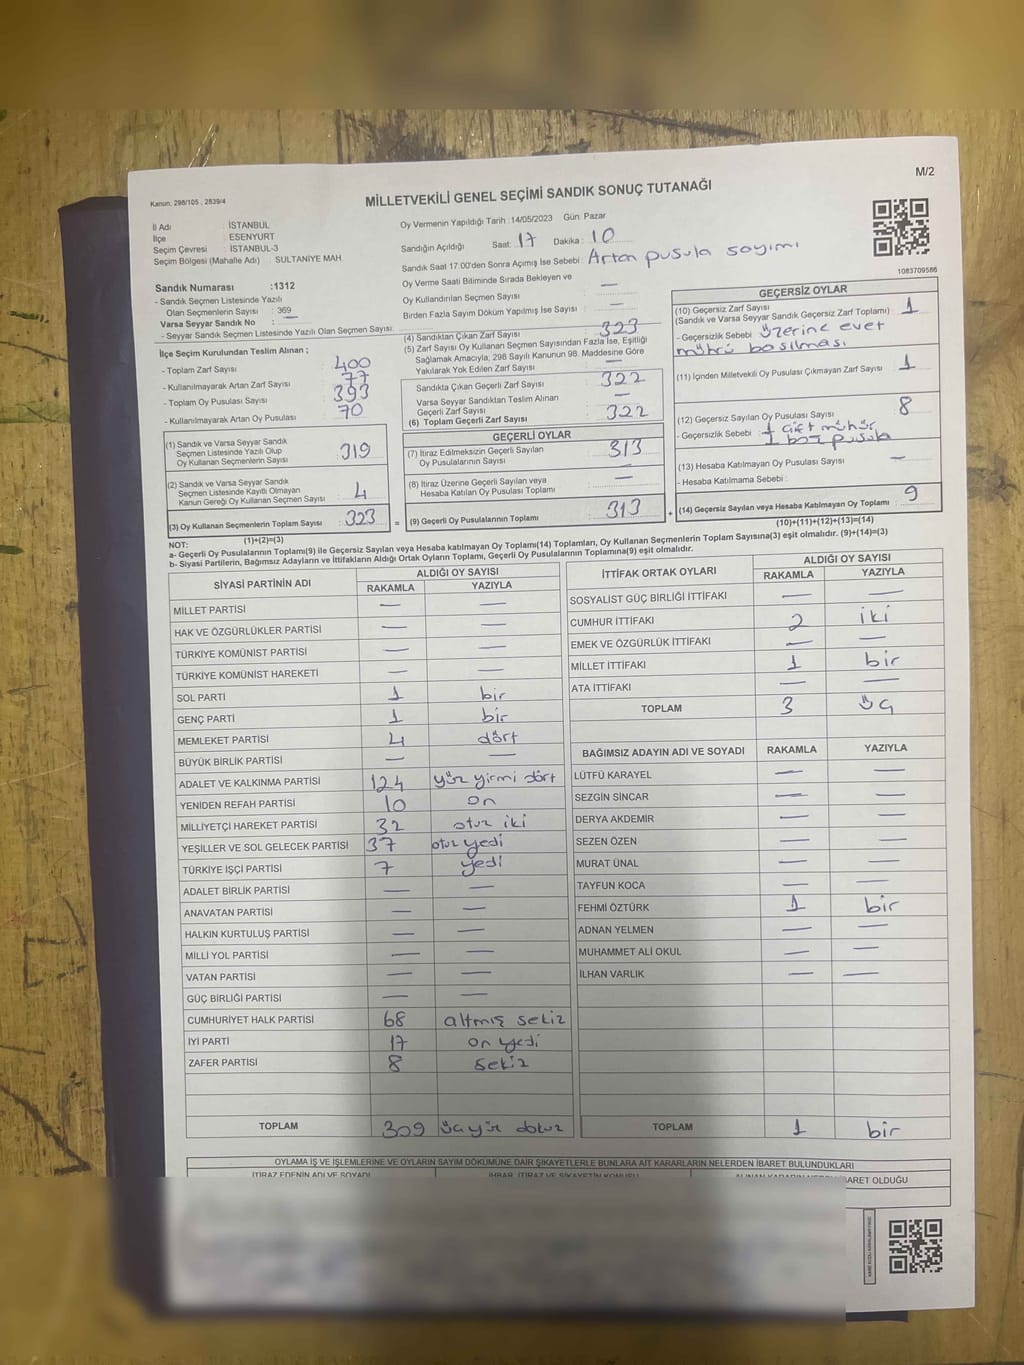 M/2
Kanun: 298/105 , 2839/4
MİLLETVEKİLİ GENEL SEÇİMİ SANDIK SONUÇ TUTANAĞI
İl Adı : İSTANBUL
İlçe : ESENYURT
Seçim Çevresi : İSTANBUL-3
Seçim Bölgesi (Mahalle Adı) : SULTANİYE MAH.
Oy Vermenin Yapıldığı Tarih :14/05/2023 Gün: Pazar
Sandığın Açıldığı Saat: 17 Dakika: 10
Sandık Saat 17:00'den Sonra Açılmış İse Sebebi: Artan pusula sayımı
Oy Verme Saati Bitiminde Sırada Bekleyen ve
Oy Kullandırılan Seçmen Sayısı —
Birden Fazla Sayım Döküm Yapılmış İse Sayısı : —
1083709586
Sandık Numarası :1312
- Sandık Seçmen Listesinde Yazılı
Olan Seçmenlerin Sayısı : 369
Varsa Seyyar Sandık No : —
- Seyyar Sandık Seçmen Listesinde Yazılı Olan Seçmen Sayısı:
İlçe Seçim Kurulundan Teslim Alınan ;
- Toplam Zarf Sayısı : 400
- Kullanılmayarak Artan Zarf Sayısı : 77
- Toplam Oy Pusulası Sayısı : 393
- Kullanılmayarak Artan Oy Pusulası : 70
(1) Sandık ve Varsa Seyyar Sandık
Seçmen Listesinde Yazılı Olup
Oy Kullanan Seçmenlerin Sayısı : 319
(2) Sandık ve Varsa Seyyar Sandık
Seçmen Listesinde Kayıtlı Olmayan
Kanun Gereği Oy Kullanan Seçmen Sayısı : 4
(3) Oy Kullanan Seçmenlerin Toplam Sayısı : 323
(1)+(2)=(3)
(4) Sandıktan Çıkan Zarf Sayısı : 323
(5) Zarf Sayısı Oy Kullanan Seçmen Sayısından Fazla İse, Eşitliği
Sağlamak Amacıyla, 298 Sayılı Kanunun 98. Maddesine Göre
Yakılarak Yok Edilen Zarf Sayısı : —
Sandıkta Çıkan Geçerli Zarf Sayısı : 322
Varsa Seyyar Sandıktan Teslim Alınan
Geçerli Zarf Sayısı : —
(6) Toplam Geçerli Zarf Sayısı : 322
GEÇERLİ OYLAR
(7) İtiraz Edilmeksizin Geçerli Sayılan
Oy Pusulalarının Sayısı : 313
(8) İtiraz Üzerine Geçerli Sayılan veya
Hesaba Katılan Oy Pusulası Toplamı : —
= (9) Geçerli Oy Pusulalarının Toplamı : 313 +
GEÇERSİZ OYLAR
(10) Geçersiz Zarf Sayısı : 1
(Sandık ve Varsa Seyyar Sandık Geçersiz Zarf Toplamı)
- Geçersizlik Sebebi : üzerine evet
mührü basılması
(11) İçinden Milletvekili Oy Pusulası Çıkmayan Zarf Sayısı : 1
(12) Geçersiz Sayılan Oy Pusulası Sayısı : 8
- Geçersizlik Sebebi : çift mühür
boş pusula
(13) Hesaba Katılmayan Oy Pusulası Sayısı : —
- Hesaba Katılmama Sebebi :
(14) Geçersiz Sayılan veya Hesaba Katılmayan Oy Toplamı : 9
(10)+(11)+(12)+(13)=(14)
NOT:
a- Geçerli Oy Pusulalarının Toplamı(9) ile Geçersiz Sayılan veya Hesaba katılmayan Oy Toplamı(14) Toplamları, Oy Kullanan Seçmenlerin Toplam Sayısına(3) eşit olmalıdır. (9)+(14)=(3)
b- Siyasi Partilerin, Bağımsız Adayların ve İttifakların Aldığı Ortak Oyların Toplamı, Geçerli Oy Pusulalarının Toplamına(9) eşit olmalıdır.
SİYASİ PARTİNİN ADI ALDIĞI OY SAYISI
RAKAMLA YAZIYLA
MİLLET PARTİSİ — —
HAK VE ÖZGÜRLÜKLER PARTİSİ — —
TÜRKİYE KOMÜNİST PARTİSİ — —
TÜRKİYE KOMÜNİST HAREKETİ — —
SOL PARTİ 1 bir
GENÇ PARTİ 1 bir
MEMLEKET PARTİSİ 4 dört
BÜYÜK BİRLİK PARTİSİ — —
ADALET VE KALKINMA PARTİSİ 124 yüz yirmi dört
YENİDEN REFAH PARTİSİ 10 on
MİLLİYETÇİ HAREKET PARTİSİ 32 otuz iki
YEŞİLLER VE SOL GELECEK PARTİSİ 37 otuz yedi
TÜRKİYE İŞÇİ PARTİSİ 7 yedi
ADALET BİRLİK PARTİSİ — —
ANAVATAN PARTİSİ — —
HALKIN KURTULUŞ PARTİSİ — —
MİLLİ YOL PARTİSİ — —
VATAN PARTİSİ — —
GÜÇ BİRLİĞİ PARTİSİ — —
CUMHURİYET HALK PARTİSİ 68 altmış sekiz
İYİ PARTİ 17 on yedi
ZAFER PARTİSİ 8 sekiz
TOPLAM 309 üçyüz dokuz
İTTİFAK ORTAK OYLARI ALDIĞI OY SAYISI
RAKAMLA YAZIYLA
SOSYALİST GÜÇ BİRLİĞİ İTTİFAKI — —
CUMHUR İTTİFAKI 2 iki
EMEK VE ÖZGÜRLÜK İTTİFAKI — —
MİLLET İTTİFAKI 1 bir
ATA İTTİFAKI — —
TOPLAM 3 üç
BAĞIMSIZ ADAYIN ADI VE SOYADI RAKAMLA YAZIYLA
LÜTFÜ KARAYEL — —
SEZGİN SİNCAR — —
DERYA AKDEMİR — —
SEZEN ÖZEN — —
MURAT ÜNAL — —
TAYFUN KOCA — —
FEHMİ ÖZTÜRK 1 bir
ADNAN YELMEN — —
MUHAMMET ALİ OKUL — —
İLHAN VARLIK — —
TOPLAM 1 bir
OYLAMA İŞ VE İŞLEMLERİNE VE OYLARIN SAYIM DÖKÜMÜNE DAİR ŞİKAYETLERLE BUNLARA AİT KARARLARIN NELERDEN İBARET BULUNDUKLARI
İTİRAZ EDENİN ADI VE SOYADI İHBAR, İTİRAZ VE ŞİKAYETİN KONUSU İBARET OLDUĞU